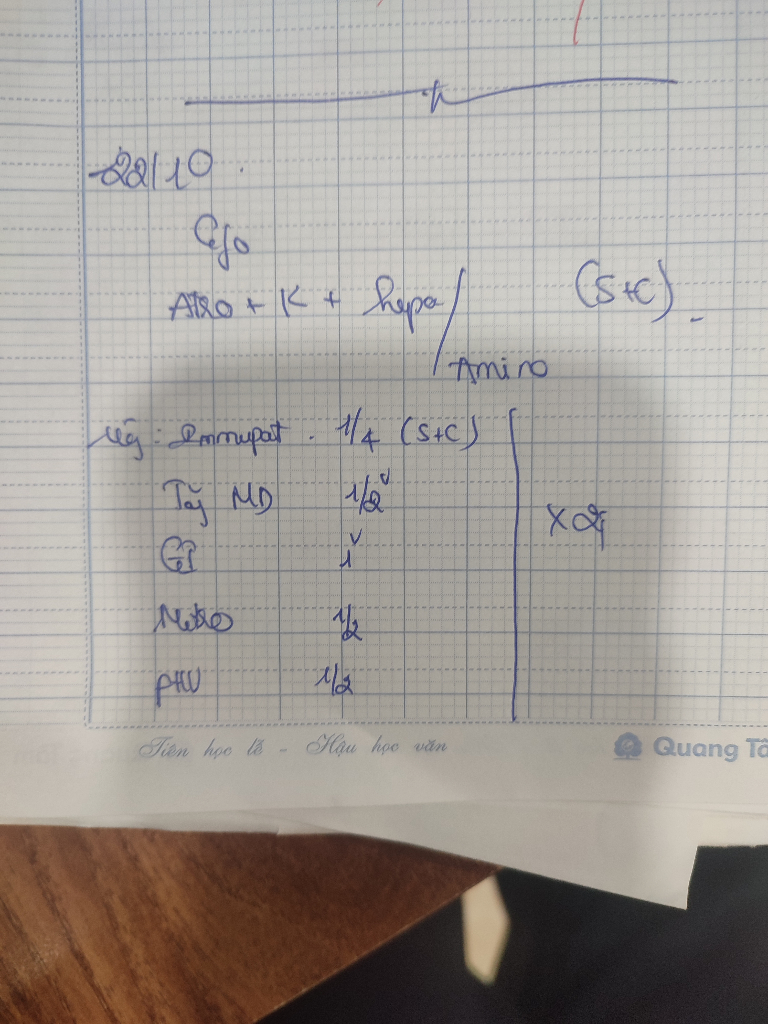 22/10.
Cefo
Atro + K + hepa / Amino (S+C).
Uống: Immupat. 1/4 (S+C)
Tẩy MD 1/2v
GI 1v x 2
Metro 1/2
pHV 1/2
Tiên học lễ - Hậu học văn
Quang Tâ